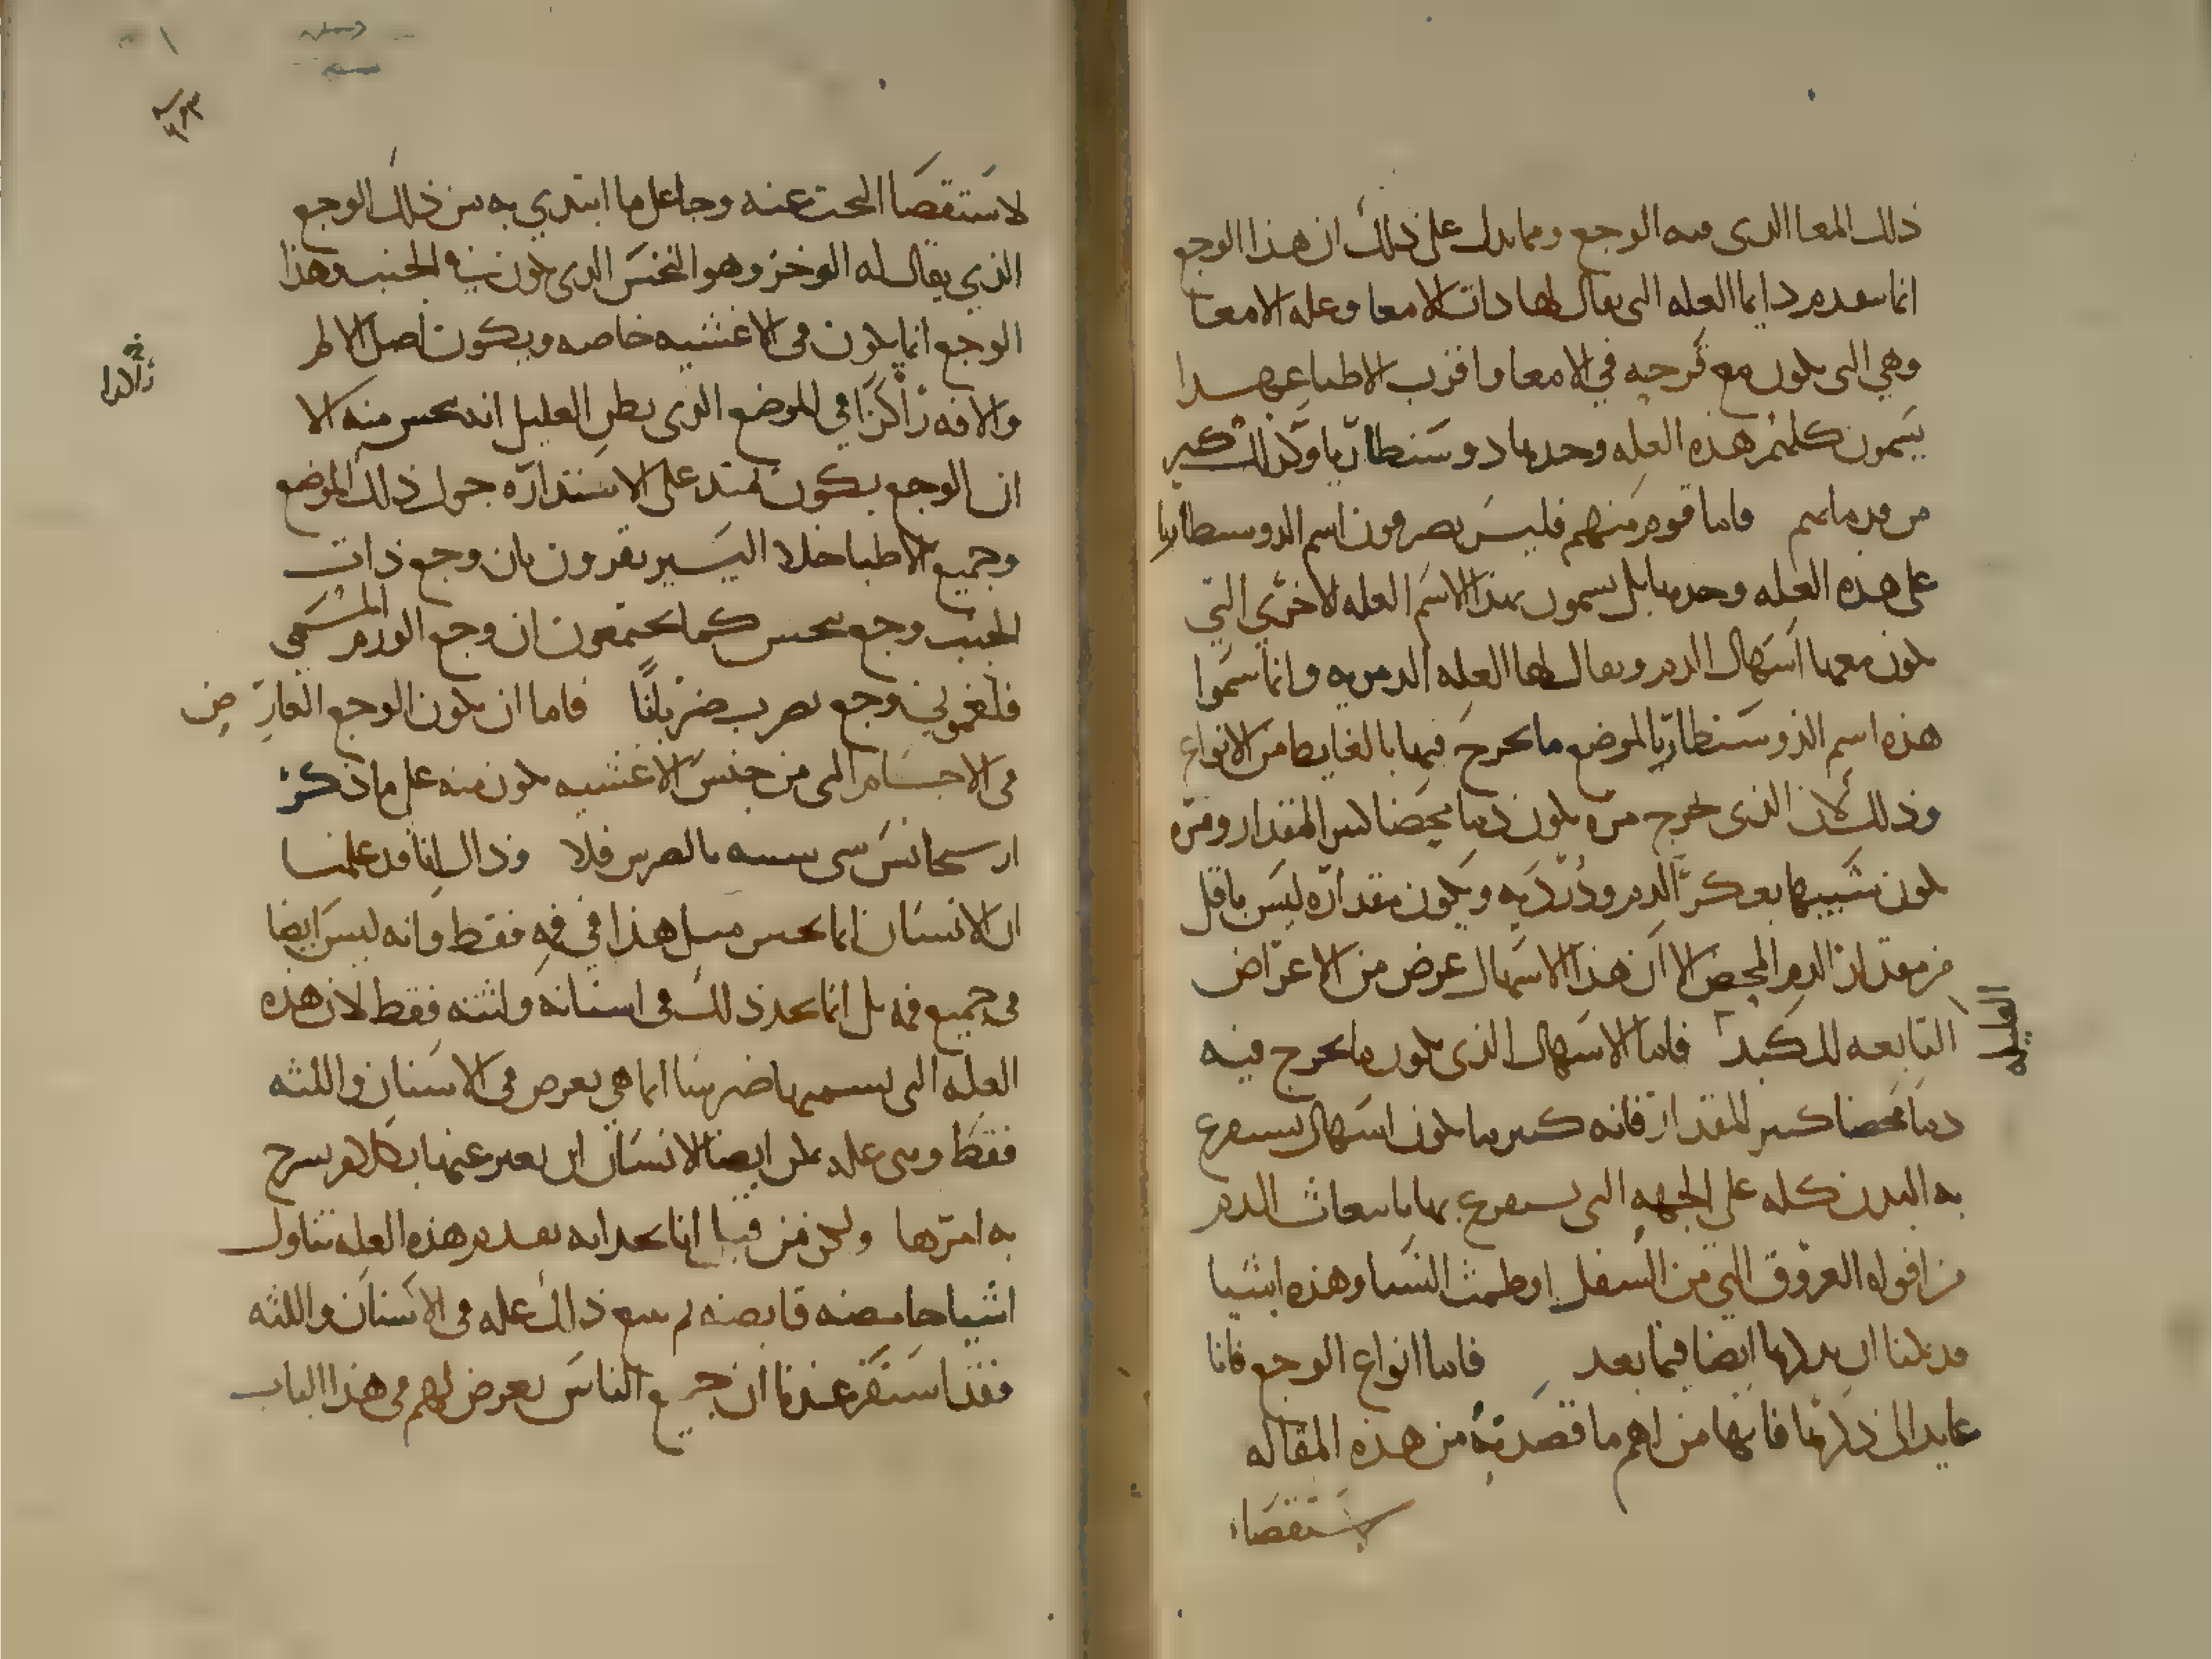 ذلك المعا الذى فيه الوجع ومما يدل على ذلك ان هذا الوجع
انما يتقدم دايما العله التى يقال لها ذات الامعا وعله الامعا
وهي التى يكون مع قرحه في الامعا واقرب الاطبا عهدا
يسمون كلهم هذه العله وحدها دوسنطاريا وكذلك كثير
من قدمايهم فاما قوم منهم فليس يصرفون اسم الدوسنطاريا
على هذه العله وحدها بل يسمون بهذا الاسم العله الاخرى التي
يكون معها اسهال الدم ويقال لها العله الدمويه وانما سموا
هذه اسم الدوسنطاريا لموضع ما يخرج فيها بالغايط من الانواع
وذلك لان الذى يخرج مره يكون دما محضا ليس المقدار ومره
يكون شبيها بعكر الدم ودرديه ويكون مقداره ليس باقل
من مقدار الدم المحض الا ان هذا الاسهال عرض من الاعراض
التابعه للكبد فاما الاسهال الذى يكون ما يخرج فيه
العليله
دما محضا كثير المقدار فانه كثيرا ما يكون اسهال يستفرغ
به البدن كله على الجهه التى يستفرغ بها بانبعاث الدم
من افواه العروق التي من اسفل او طمث النسا وهذه اشيا
قد يمكنا ان ايضا فيما بعد فاما انواع الوجع فانا
عايد الى ذكرها فانها من اهم ما قصد به من هذه المقاله
لاستقصاء
لاستقصا البحث عنه وجاعل ما ابتدي به من ذلك الوجع
الذي يقال له الوخز وهو النخس الذى يكون في الجنب وهذا
الوجع انما يكون فى الاغشيه خاصه ويكون اصل الالم
والافه راكزا في الموضع الذى يظن العليل انه يحس منه الا
ان الوجع يكون يمتد على الاستداره حول ذلك الموضع
وجميع الاطبا خلا اليسير يقرون بان وجع ذات
الجنب وجع ينخس كما يجتمعون ان وجع الورم المسمى
فلغموني وجع يضرب ضربانا فاما ان يكون الوجع العارض
فى الاجسام التى من جنس الاغشيه يكون منه على ما ذكر
ارسيجانس شى شبيه بالضرس فلا وذاك انا قد علمنا
ان الانسان انما يحس مثل هذا في فيه فقط وانه ليس ايضا
فى جميع فمه بل انما يجد ذلك فى اسنانه ولثته فقط لان هذه
العله التى نسميها ضرسا انما هي تعرض فى الاسنان واللثه
فقط وهى عله يمكن ايضا الانسان ان يعبر عنها بكلام يشرح
به امرها ونحن فمن قبل انا نجد انه بعدم هذه العله تناول
اشيا حامضه قابضه ثم يتبع ذلك عله فى الاسنان واللثه
فقد استقر عندنا ان جميع الناس يعرض لهم فى هذا الباب